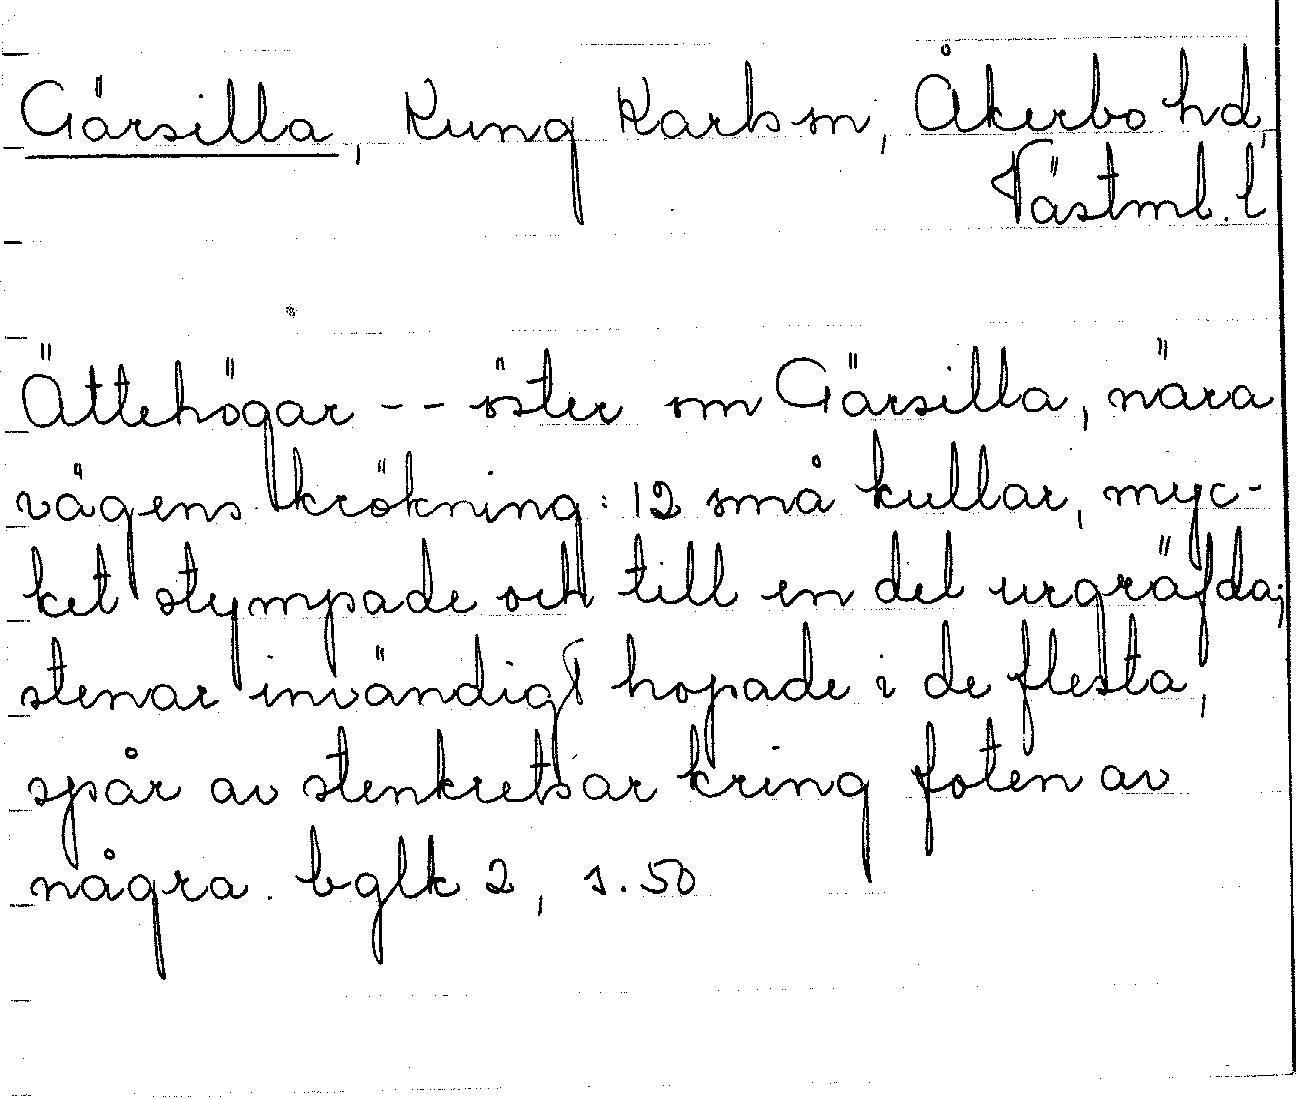 Gärsilla, Kung Karls sn, Åkerbo hd,
Västml. l
Ättehögar -- öster om Gärsilla, nära
vägens krökning: 12 små kullar, myc-
ket stympade och till en del urgräfda;
stenar invändigt hopade i de flesta,
spår av stenkretsar kring foten av
några. bglk 2, s. 50